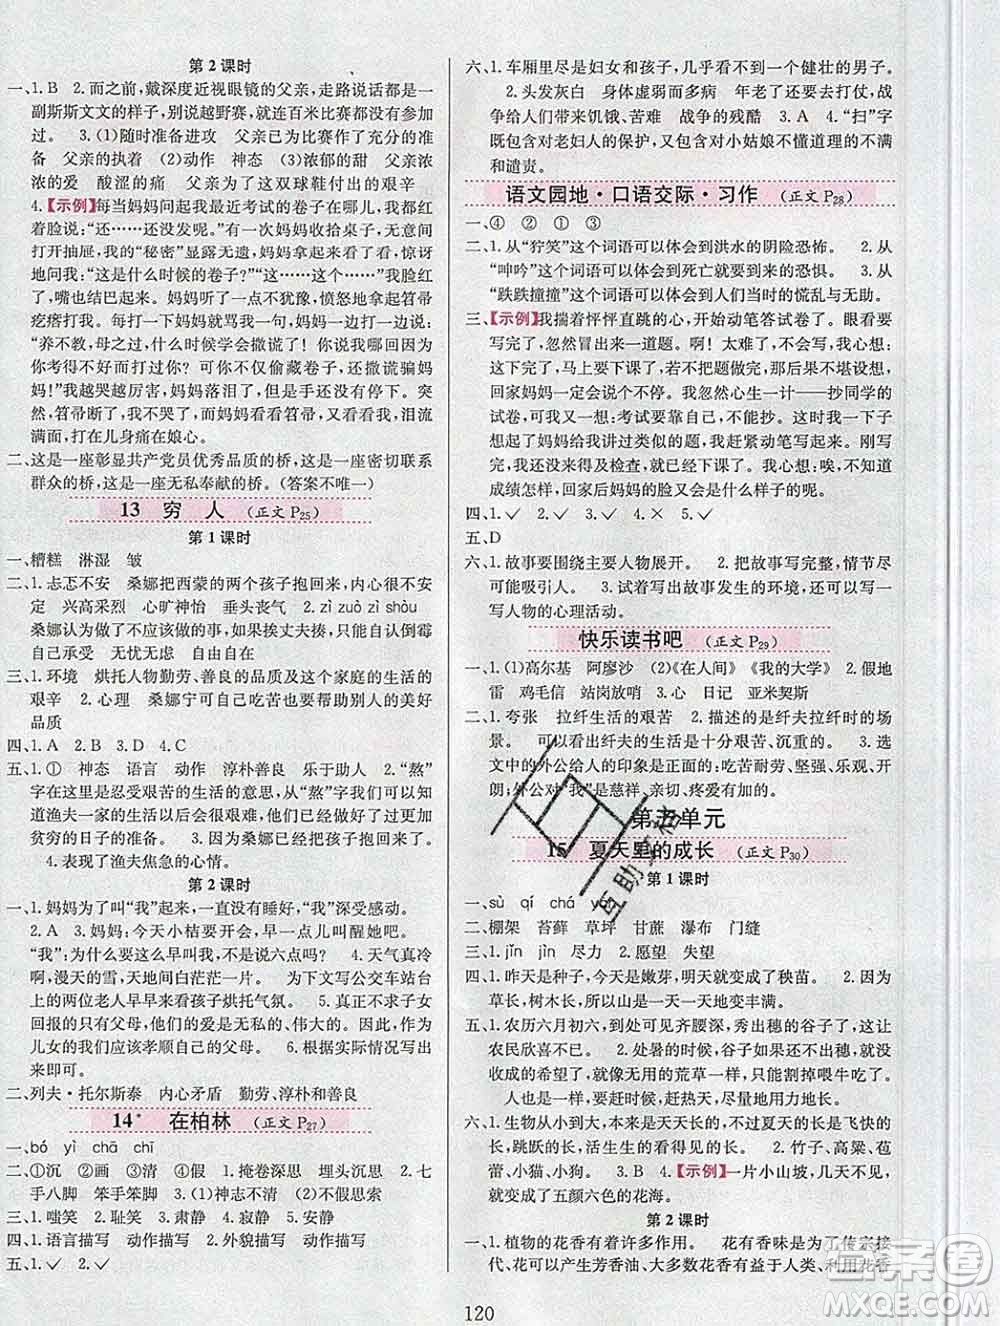 第2课时
一、1. B　2. 而之前,戴深度近视眼镜的父亲,走路说话都是一
副斯斯文文的样子,别说越野赛,就连百米比赛都没有参加
过。　3. (1)随时准备进攻　父亲已为比赛作了充分的准
备　父亲的执着　(2)动作　神态　(3)浓郁的甜　父亲浓
浓的爱　酸涩的痛　父亲为了这双球鞋付出的艰辛
4.【示例】每当妈妈问起我最近考试的卷子在哪儿,我都红
着脸说:“还……还没发。”有一次妈妈收拾桌子,无意中
打开抽屉,我的“秘密”显露无遗。妈妈看了看卷子,惊讶
地问我:“这是什么时候的卷子?”“这……这……”我脸红
了,嘴也结巴了。妈妈一点儿不犹豫,愤怒地拿起笤帚
疙瘩打我。每打一下妈妈就骂我一句,一边打一边说:
“养不教,母之过,什么时候学会撒谎了!你知不知道?你
考得不好可以,但你不可以偷偷藏着卷子,还撒谎骗妈
妈!”我越哭越厉害,妈妈落泪了,但是打我还没有停下。突
然,笤帚断了,我也不哭了,妈妈看看笤帚,又看看我,泪流
满面,打在儿身痛在娘心。
二、这是一座彰显共产党员优秀品质的桥,这是一座密切联系
群众的桥,这是一座无私奉献的桥。(答案不唯一)
13　穷　人　(正文P25)
第1课时
一、糟糕　淋湿　皱
二、1. 忐忑不安　桑娜把西蒙的两个孩子抱回来,内心很不安
定　兴高采烈　心旷神怡　垂头丧气　2. zì zuò zì shòu
桑娜认为做了不应该做的事,如果挨丈夫揍,只有自认倒霉
自己承当　无忧无虑　自由自在
三、1. 环境　烘托人物勤劳、善良的品质及这个家庭的生活的
艰辛　2. 心理　桑娜宁可自己吃苦也要帮助别人的美好
品质
四、1. A　2. B　3. D　4. C
五、1. ①　神态　语言　动作　淳朴善良　乐于助人　2. “熬”
字在这里是忍受艰苦的生活的意思,从“熬”字我们可以知
道渔夫一家的生活以后会更加艰苦,但渔夫已经做好过更加
贫穷的日子的准备。　3. 渔夫想让桑娜把孩子抱回来。
4. 表现了渔夫焦急的心情。
第2课时
一、1. 妈妈为了叫“我”起来,一直没有睡,“我”深受感动。
2. A　3. 妈妈:今天小桔要开会,早早出发,别忘记叫醒她吧。
“我”:为什么要这么早呢,不是说六点吗?　4. 天气冷
啊,漫天的雪,天地间白茫茫一片。　为下文写公交车站台
上的两位老人早早来看孩子烘托气氛。　5. 真正不求子女
回报的只有父母,他们的爱是无私的、伟大的。因此,作为
儿女的我们应该孝顺自己的父母。　6. 根据实际情况写出
来即可。
二、列夫·托尔斯泰　内心矛盾　勤劳、淳朴和善良
14*　在柏林　(正文P27)
一、bó yì chā chī
二、①沉　②画　③清　④假　1. 掩卷深思　浮想联翩　2. 七
手八脚　笨手笨脚　3. (1)神志不清　(2)不假思索
三、1. 嗤笑　2. 耻笑　3. 肃静　4. 寂静　5. 安静
四、1. 语言描写　动作描写　2. 外貌描写　动作描写
五、1. ✓　2. ✓
六、1. 车厢里尽是妇女和孩子,几乎看不到一个健壮的男子。
2. 头发灰白　身体虚弱而多病　年老了还要去打仗,战
争给人们带来饥饿、苦难　战争的残酷　3. A　4. “扫”字
既包含了对老妇人的保护,又包含对小姑娘不懂道理的不满
和谴责。
语文园地·口语交际·习作　(正文P28)
一、④　②　①　③
二、1. 从“狞笑”这个词语可以体会到洪水的阴险恐怖。　2. 从
“呻吟”这个词语可以体会到死亡就要来临的恐惧。　3. 从
“跌跌撞撞”这个词语可以体会到人们当时的慌乱与无助。
三、【示例】我揣着怦怦直跳的心,开始动笔答试卷了。眼看要
写完了,忽然冒出来一道题。啊!太难了,不会写,我心想:
这下完了,马上要下课了,我还没有写完,成绩不堪设想,
回家妈妈一定会说个不停。我忽然心生一计——抄同学的
试卷,可我又一想:考试要靠自己,不能抄。这时我一下子
想起了妈妈给我讲过类似的题,我赶紧动笔写起来。刚写
完,还没来得及检查,就已经下课了。唉!不知道我这次
成绩怎样,回家后妈妈的脸又会是什么样子的呢?
四、1. ✓　2. ✓　3. ✓　4. ×　5. ✓
五、D
六、1. 故事要围绕主要人物展开。　2. 把故事写完整,情节尽
可能吸引人。　3. 试着写出故事发生的环境,还可以写一
写人物的心理活动。
快乐读书吧　(正文P29)
一、1. (1)高尔基　阿廖沙　(2)《在人间》《我的大学》　2. 假地
雷　鸡毛信　站岗放哨　3. 心　日记　亚米契斯
二、1. 夸张　拉纤生活的艰苦　2. 描述的是纤夫拉纤时的场
景。　可以看出纤夫的生活是十分艰苦、沉重的。　3. 选
文中的外公给人的印象是面的:吃苦耐劳、坚强、乐观、开
朗;外公对“我”是慈祥、亲切、疼爱有加的。
第五单元
15　夏天里的成长　(正文P30)
第1课时
一、sù qí chá yán
二、棚架　苔藓　草坪　甘蔗　瀑布　门缝
三、1. jǐn jìn　尽力　2. 愿望　失望
四、1. 昨天是种子,今天是嫩芽,明天就变成了秧苗。　2. 因为
草长,树木长,所以山是一天一天地变丰满。
五、1. 农历六月初六,到处可见齐腰深,秀出穗的谷子了,这让
农民欣喜不已。　2. 处暑的时候,谷子如果还没长好,就没有
收成的希望了,就和无用的荒草一样了。　3. 时候
人也是一样,要赶时候,赶热天,尽量地用力地长。
六、1. 生物从小到大,本来是天天长的,不过夏天的长是飞快的
长,跳跃的长,活生生的看得见的长。　2. 竹子、高粱、苞
蕾、小猫、小狗。　3. B　4.【示例】一片小山坡,几天不见,
就变成了五颜六色的花海。
第2课时
一、1. 植物的花香有着许多作用。　花有香味是为了传宗接
代,花可以产生芳香油,大多数花香有益于人类、利用花香
120
互助学榜
答案圈
MXQE.COM